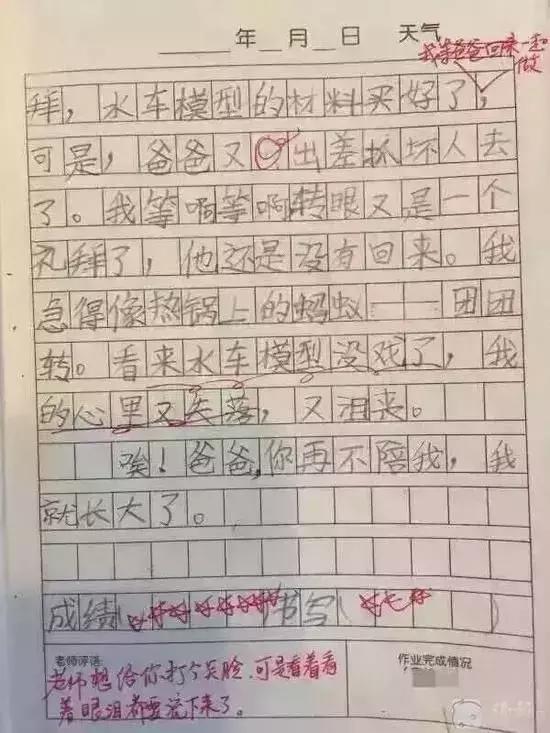 年 月 日 天气
我等爸爸回来一起做
拜，水车模型的材料买好了，
可是，爸爸又出差抓坏人去
了。我等啊等啊转眼又是一个
礼拜了，他还是没有回来。我
急得像热锅上的蚂蚁——团团
转。看来水车模型没戏了，我
的心里又失落，又泪丧。
唉！爸爸，你再不陪我，我
就长大了。
成绩（好好好好好好好）书写（好 好）
老师评语：
作业完成情况
老师想给你打个笑脸，可是看着看
着眼泪都要流下来了。